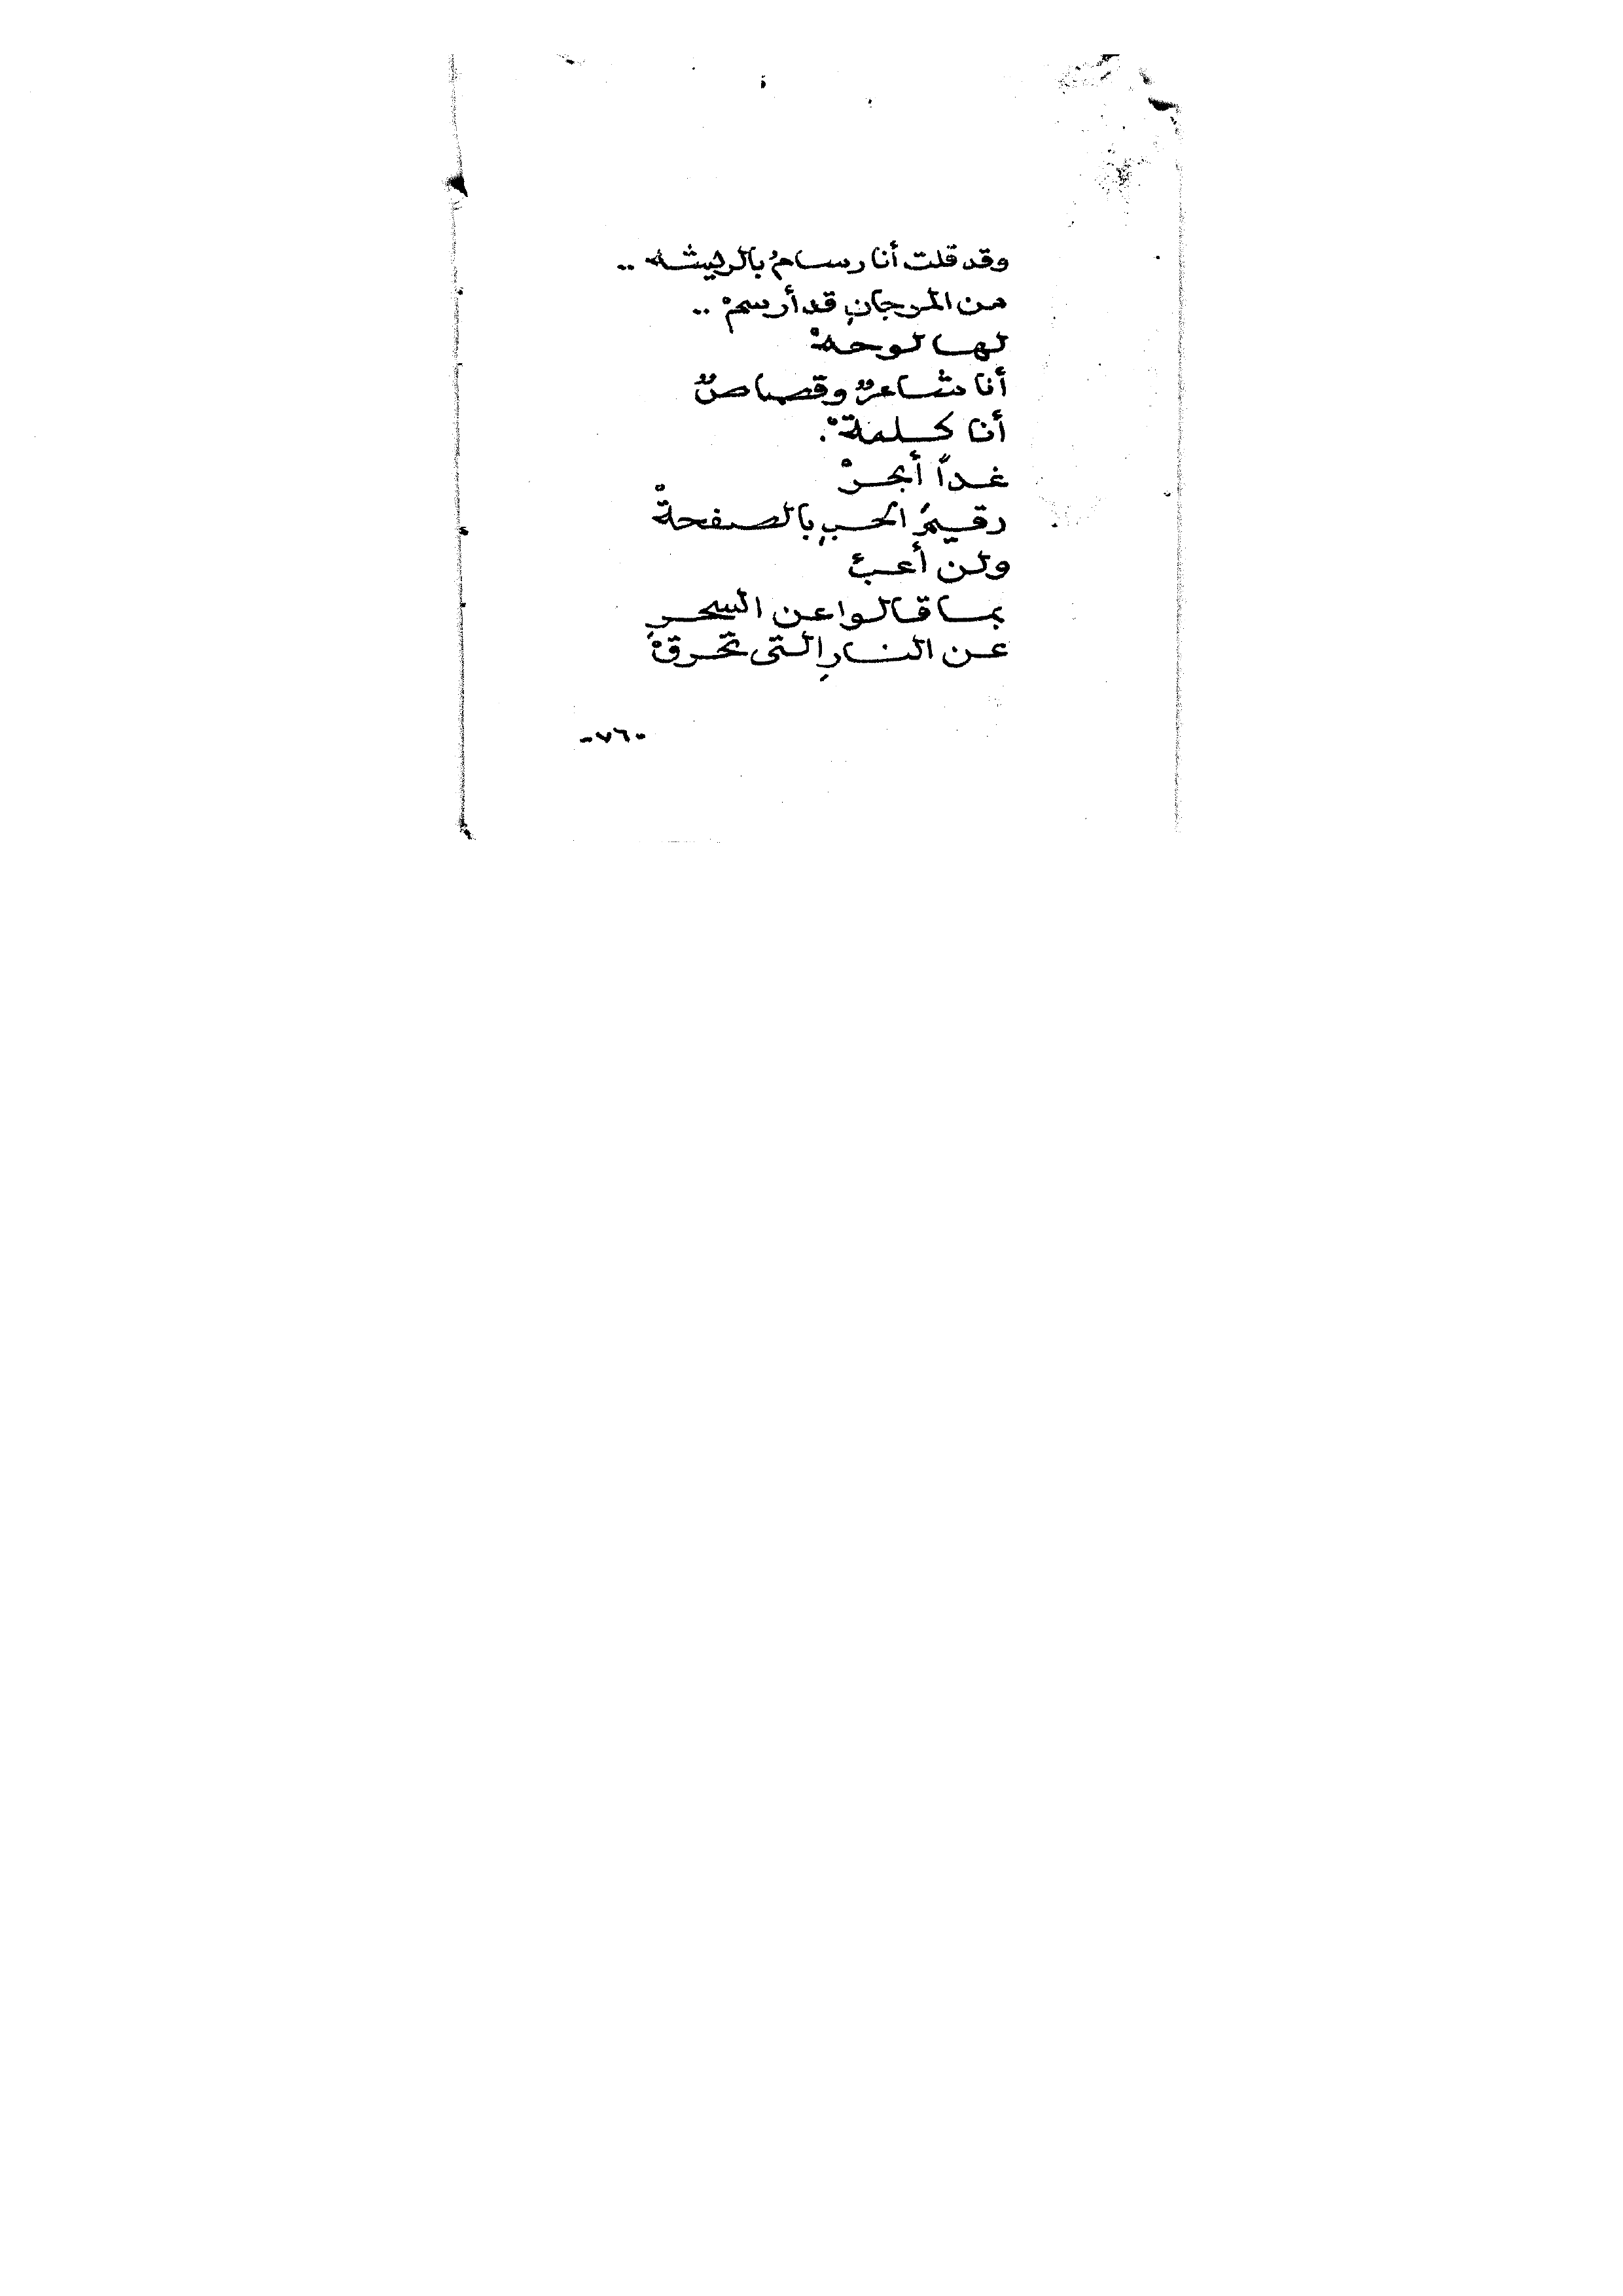 وقد قلت أنا رسامُ بالريشه ..
من المرجانِ قد أرسمْ ..
لها لوحهْ
أنا شاعرٌ وقصاصٌ
أنا كلمةْ .
غداً أبحرْ
رقيمُ الحبِ بالصفحةْ
ولن أعبئ
بما قالوا عن السحرِ
عن النارِ التى تحرقْ
-٧٦-